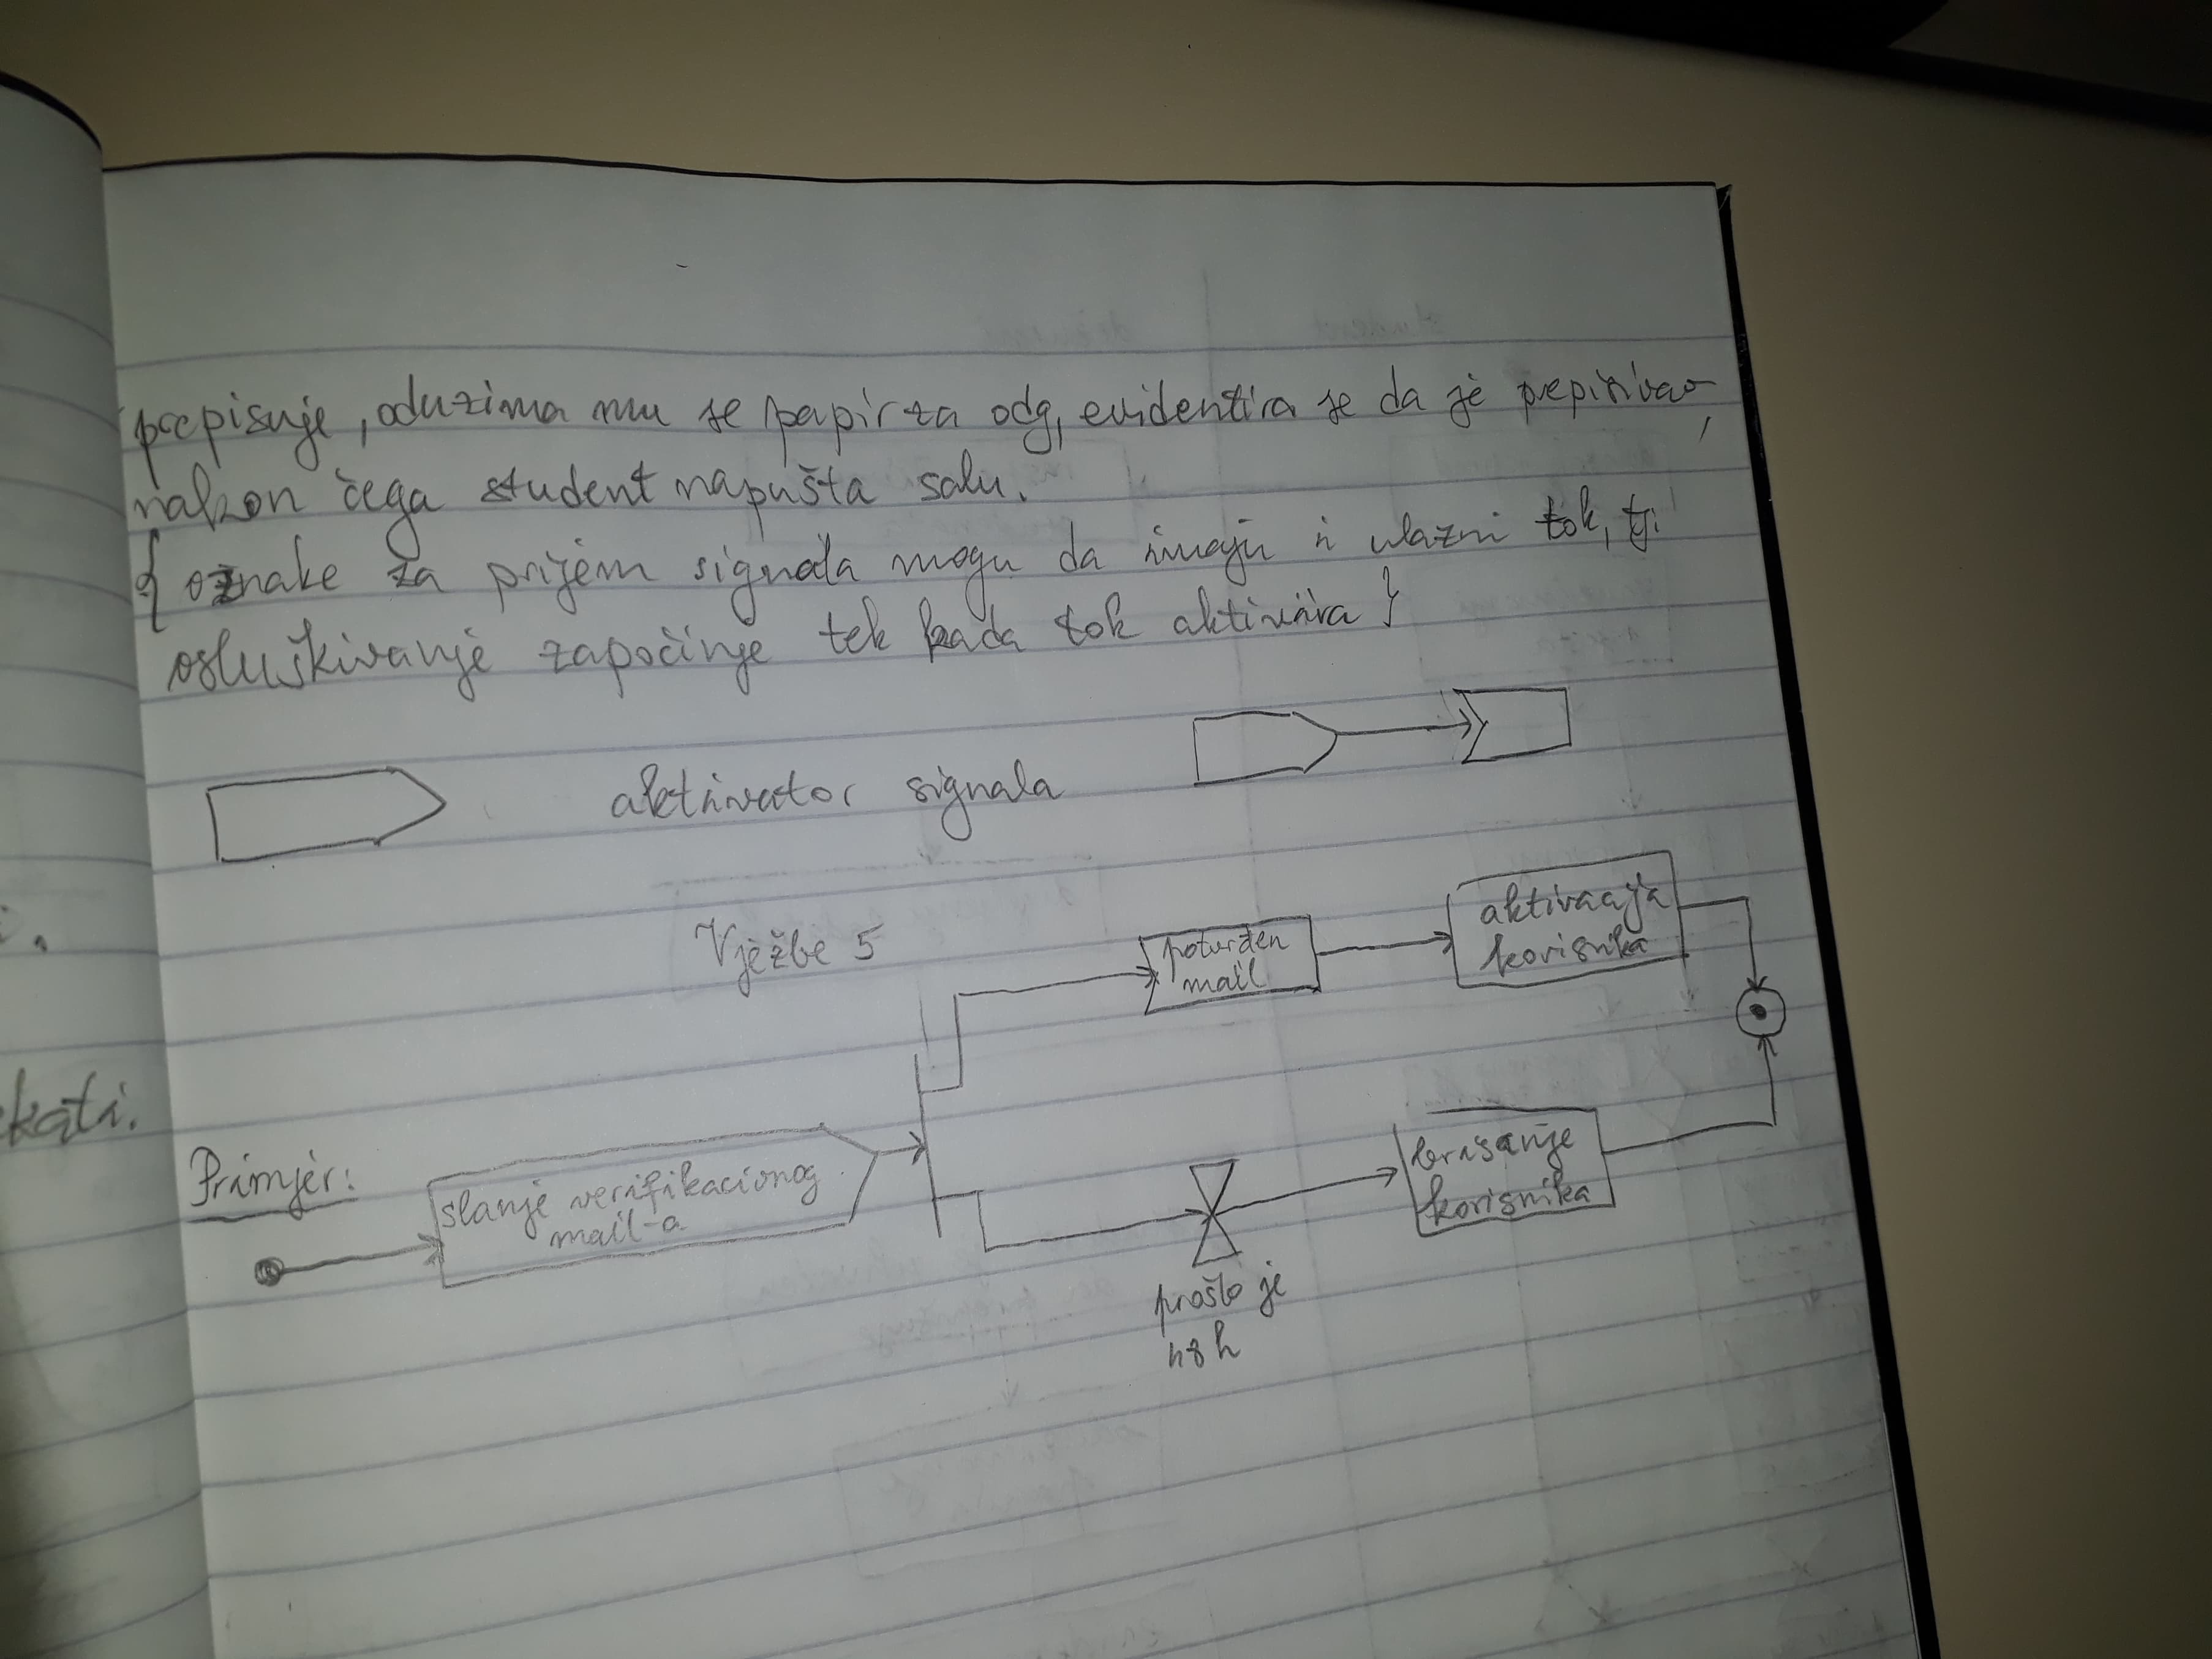 prepisuje, oduzima mu se papir za odg, evidentira se da je prepisivao,
nakon čega student napušta salu.
{ oznake za prijem signala mogu da imaju i ulazni tok, tj.
osluškivanje započinje tek kada tok aktivira }
aktivator signala
Vježbe 5
potvrđen
mail
aktivacija
korisnika
Primjer:
slanje verifikacionog
mail-a
brisanje
korisnika
prošlo je
48h
kati.